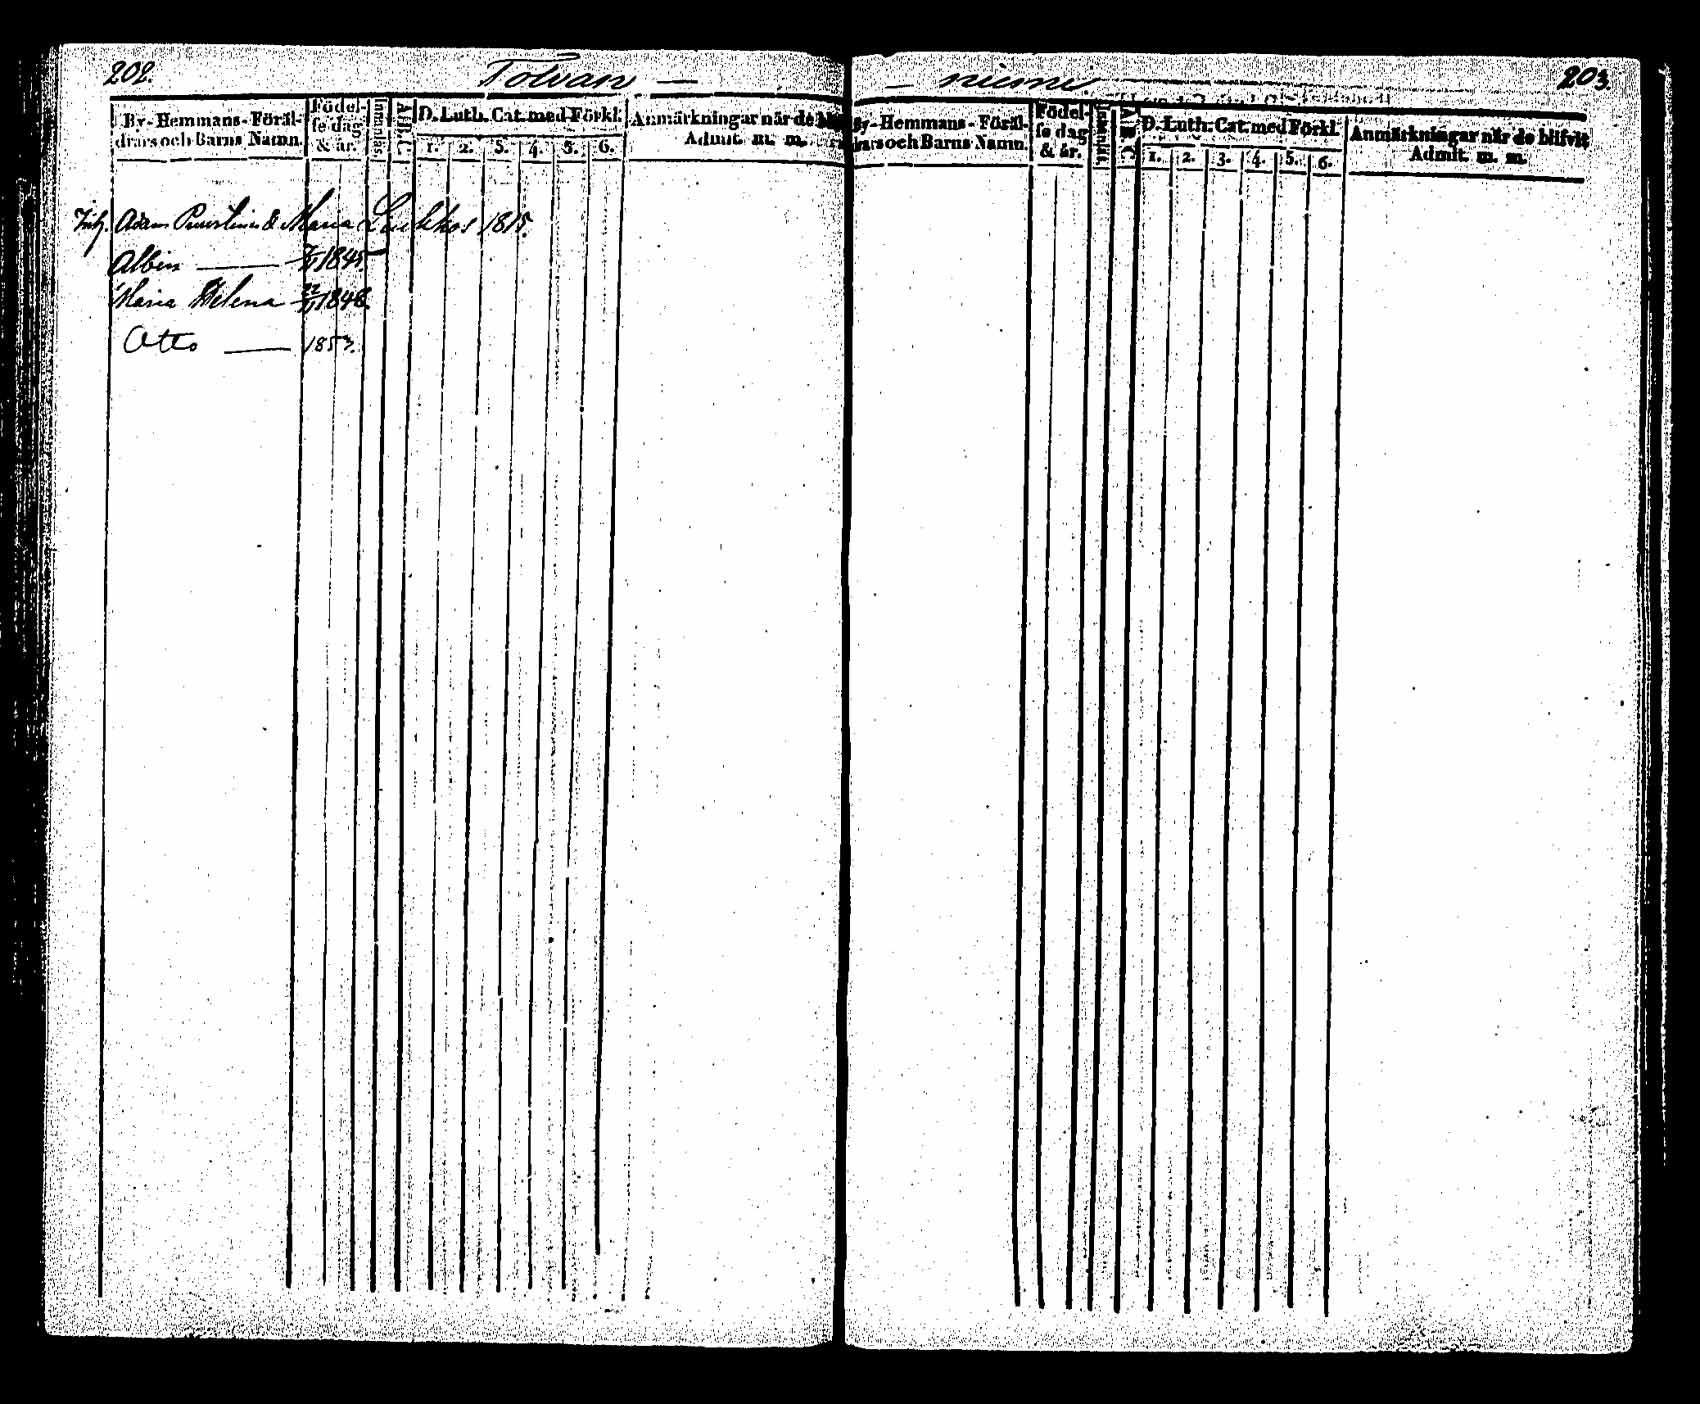 202.
Tolvan —
By-Hemmans-Föräl-
drars och Barns Namn.
Födel-
se dag
& år.
Innanläs
A. B. C.
D. Luth. Cat. med Förkl.
1. 2. 3. 4. 5. 6.
Anmärkningar när de
Admit. m. m.
Adam & Maria 1815.
Albin — 1845
Maria Helena 1848.
Otto — 1853.
— niemi.
203.
By-Hemmans-Föräl-
drars och Barns Namn.
Födel-
se dag
& år.
Innanläs
A. B. C.
D. Luth. Cat. med Förkl.
1. 2. 3. 4. 5. 6.
Anmärkningar när de blifvit
Admit. m. m.